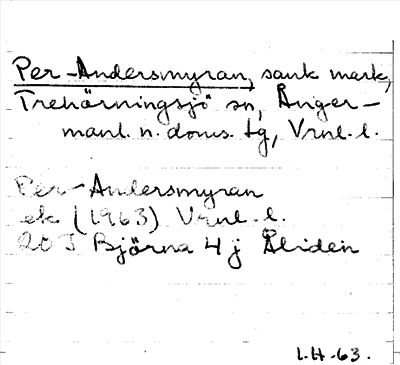 Per-Andersmyran, sank mark,
Trehörningsjö sn, Ånger-
manl. n. doms. tg, Vrnl. l.
Per-Andersmyran
ek (1963) Vrnl. l.
20 J Björna 4 j Åliden
L.H.-63.